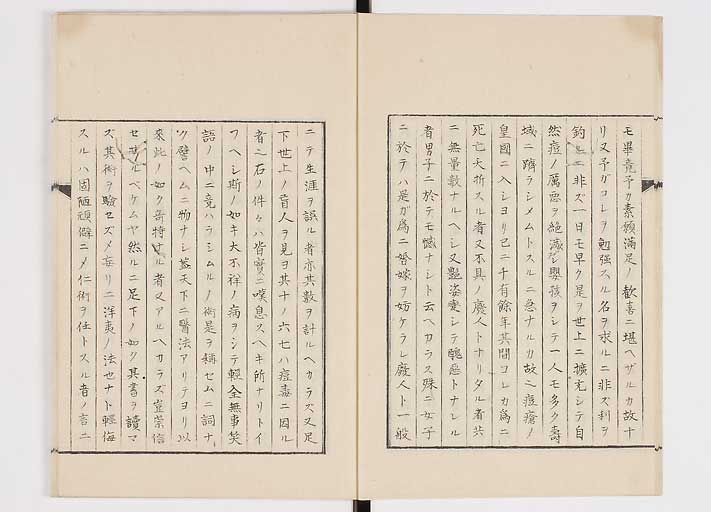 モ畢竟予カ素願滿足ノ歡喜ニ堪ヘザルカ故ナ
リ又予ガコレヲ勉强スル名ヲ求ルニ非ズ利ヲ
釣ルニ非ズ一日モ早ク是ヲ世上ニ擴充シテ自
然痘ノ厲惡ヲ絕滅シ嬰孩ヲシテ一人モ多ク壽
域ニ躋ラシメムトスルニ急ナルカ故ニ痘瘡ノ
皇國ニ入シヨリ已ニ千有餘年其間コレカ爲ニ
死亡夭折スル者又不具ノ廢人トナリタル者共
ニ無量數ナルヘシ又艷姿變シテ醜惡トナレル
者男子ニ於テモ憾ナシト云ヘカラス殊ニ女子
ニ於テハ是ガ爲ニ婚嫁ヲ妨ケラレ廢人ト一般
ニテ生涯ヲ誤ル者亦其數ヲ計ルヘカラズ又足
下世上ノ盲人ヲ見ヨ其十ノ六七ハ痘毒ニ因ル
者之右ノ件々ハ皆實ニ嘆息スヘキ所ナリトイ
フヘシ斯ノ如キ大不祥ノ病ヲシテ輕全無事笑
語ノ中ニ竟ハラシムルノ術是ヲ稱セムニ詞ナ
ク譬ヘムニ物ナシ蓋天下ニ醫法アリテヨリ以
來此ノ如ク奇特ナル者又アルヘカラズ豈崇信
セザルベケムヤ然ルニ足下ノ如ク其書ヲ讀マ
ズ其術ヲ驗セズメ妄リニ洋夷ノ法也ナト輕侮
スルハ固陋頑僻ニメ仁術ヲ任トスル者ノ言ニ